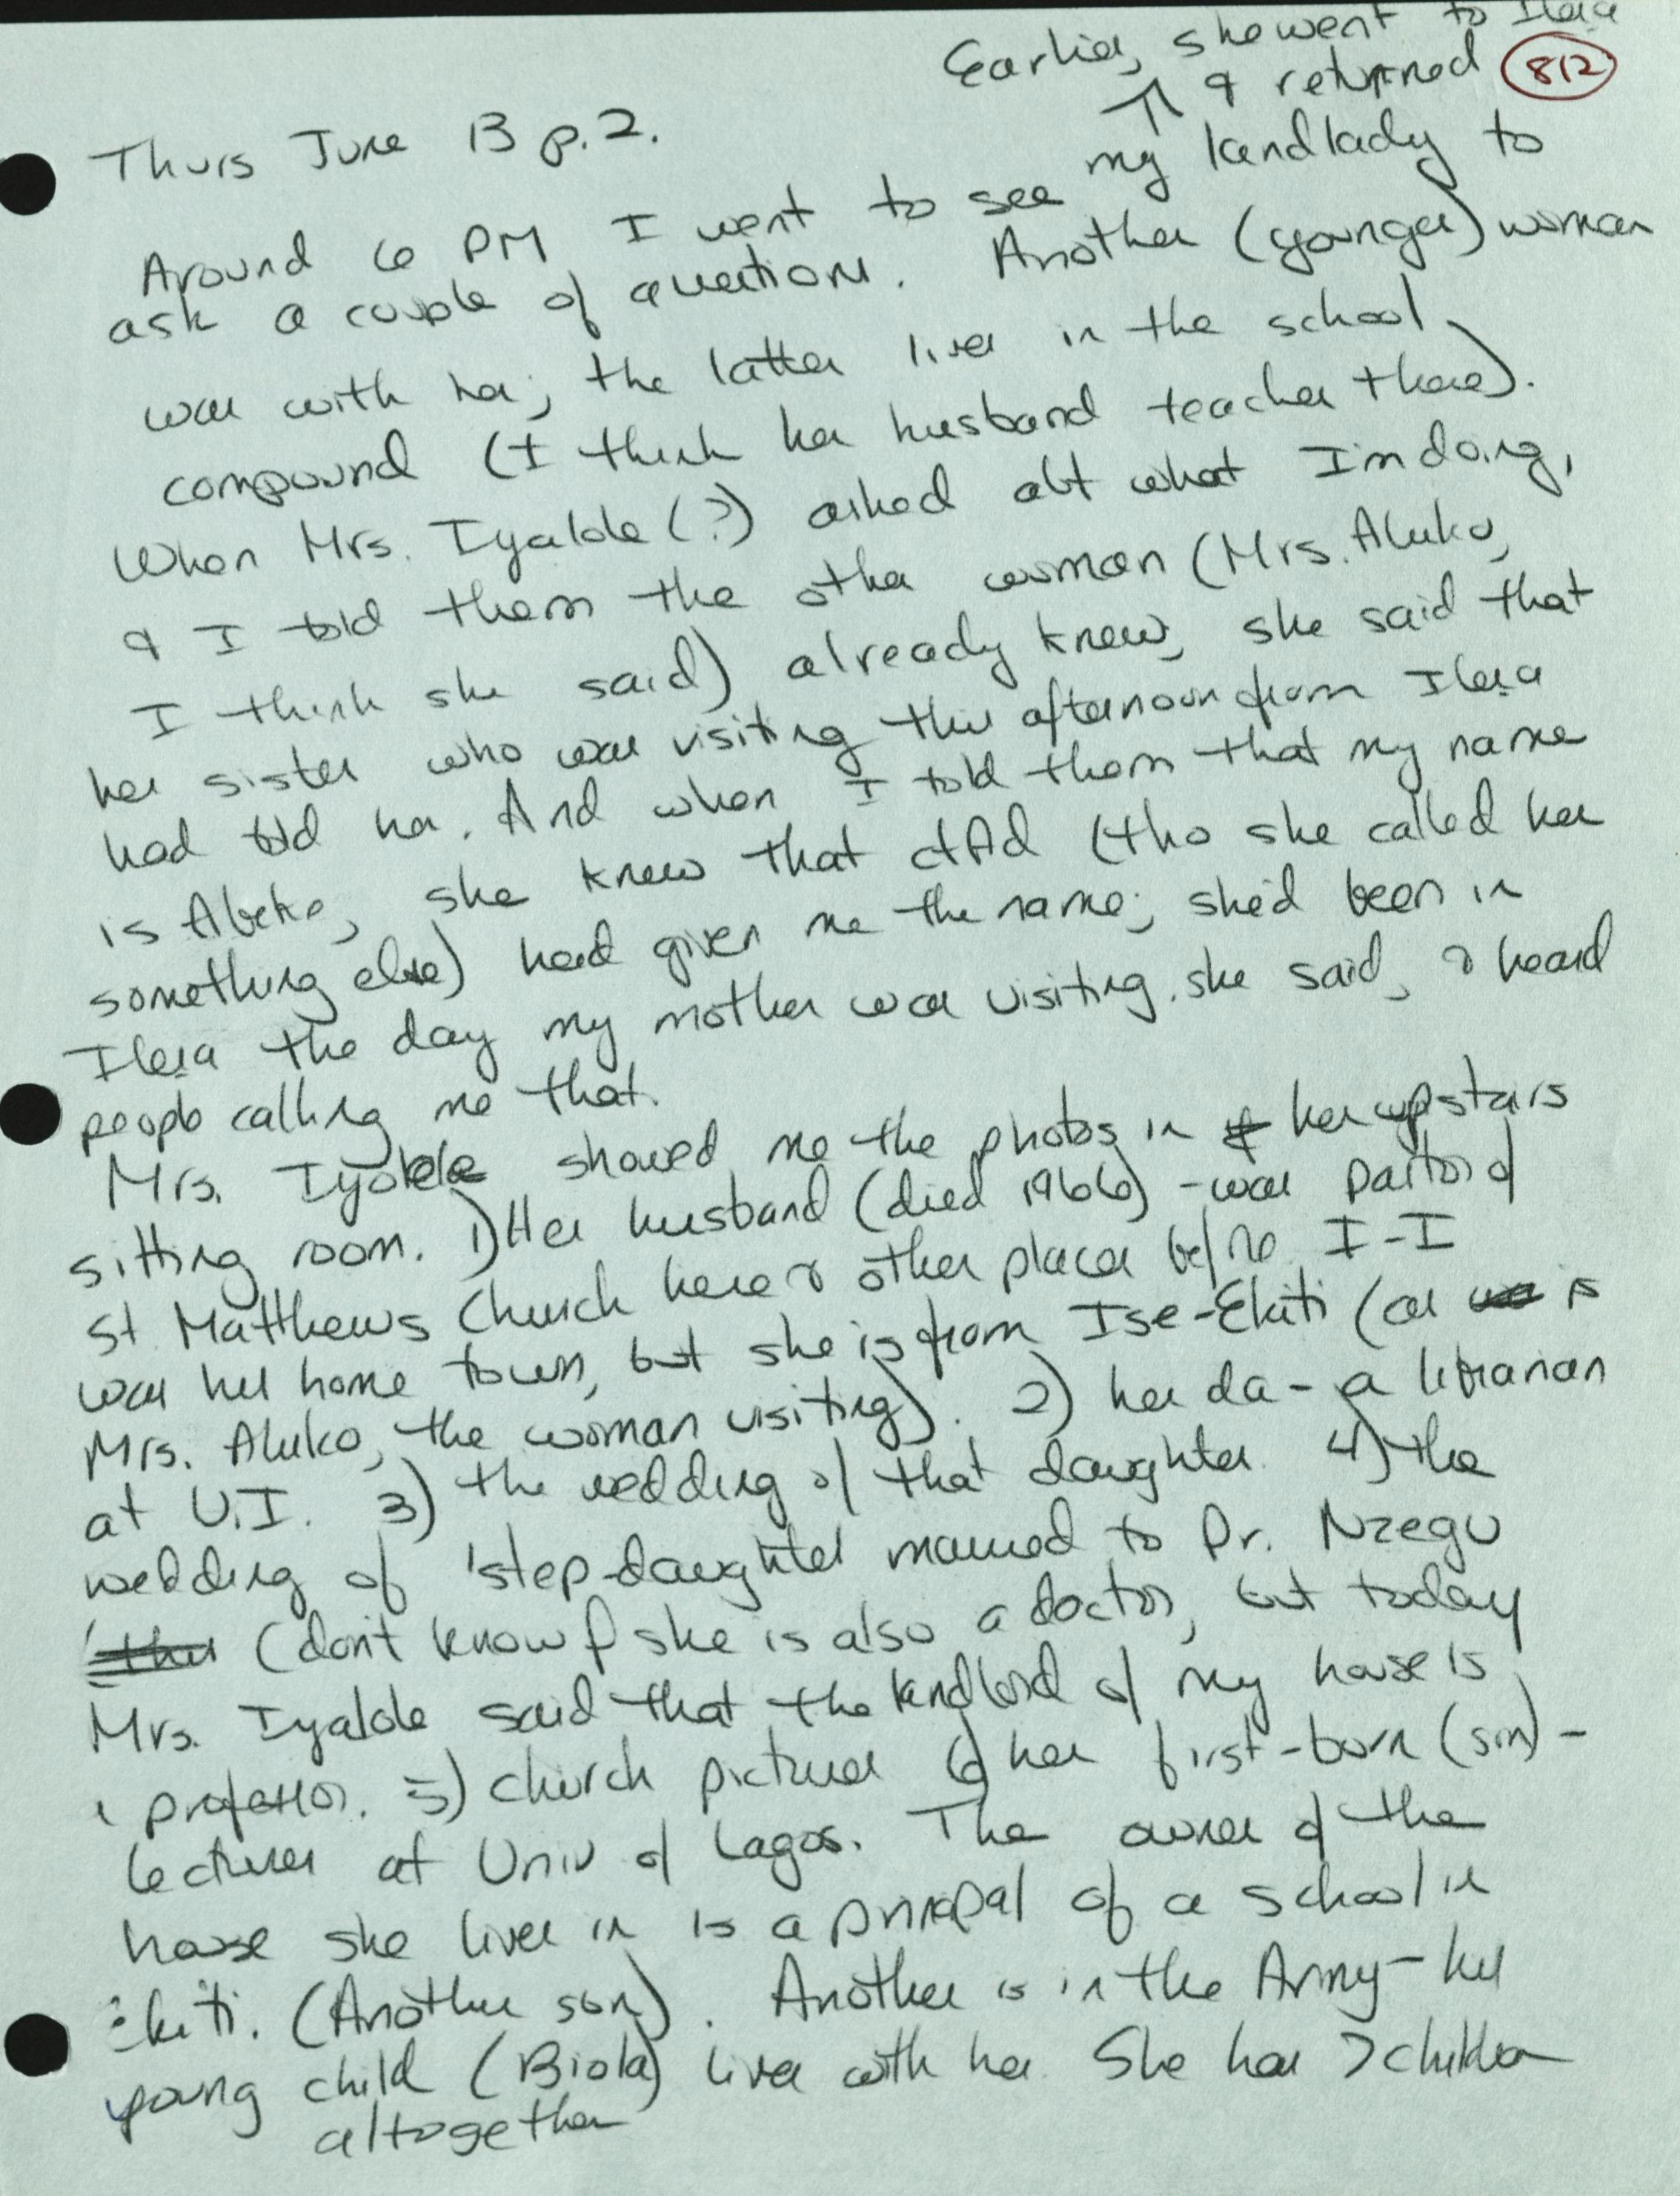 Earlier, she went to Ileṣa
↑ & returned
812
Thurs June 13 p.2.
Around 6 PM I went to see my landlady to
ask a couple of questions. Another (younger) woman
was with her; the latter lives in the school
compound (I think her husband teaches there).
When Mrs. Iyalole (?) asked abt what I'm doing,
& I told them the other woman (Mrs. Aluko,
I think she said) already knew, she said that
her sister who was visiting this afternoon from Ileṣa
had told her. And when I told them that my name
is Abekẹ, she knew that dAd (tho she called her
something else) had given me the name; she'd been in
Ileṣa the day my mother was visiting, she said, & heard
people calling me that.
Mrs. Iyolole showed me the photos in her upstairs
sitting room. 1) Her husband (died 1966) - was pastor of
St Matthews Church here & other places be/re I-I
was her home town, but she is from Ise-Ekiti (as is
Mrs. Aluko, the woman visiting). 2) her da - a librarian
at U.I. 3) the wedding of that daughter 4) the
wedding of 'step-daughter married to Dr. Nzegu
(don't know if she is also a doctor, but today
Mrs. Iyalole said that the landlord of my house is
professor. 5) church pictures 6) her first-born (son) -
lecturer at Univ of Lagos. The owner of the
house she lives in is a principal of a school in
Ekiti. (Another son). Another is in the Army - her
young child (Biola) lives with her. She has 7 children
altogether